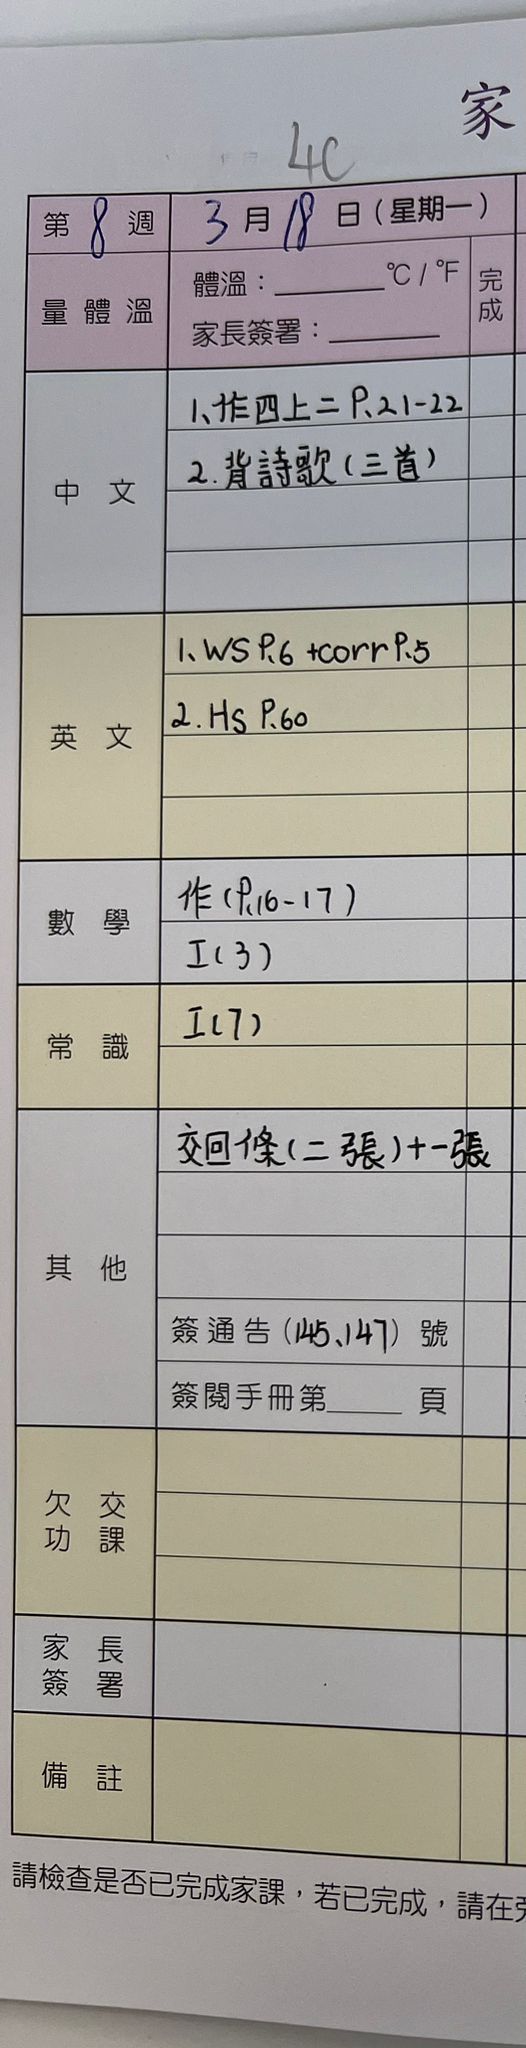 家
4C
第8週 3月18日(星期一)
量體溫 體溫：______°C / °F 完成
家長簽署：______
中文
1、作四上二 P.21-22
2. 背詩歌(三首)
英文
1、WS P.6 +corr P.5
2. HS P.60
數學
作(P.16-17)
I(3)
常識
I(7)
其他
交回條(二張)+一張
簽通告(145、147)號
簽閱手冊第____頁
欠交功課
家長簽署
備註
請檢查是否已完成家課，若已完成，請在